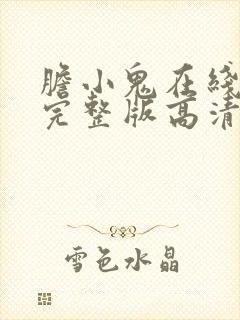 膽小鬼在綫
完整版高清
雪色水晶